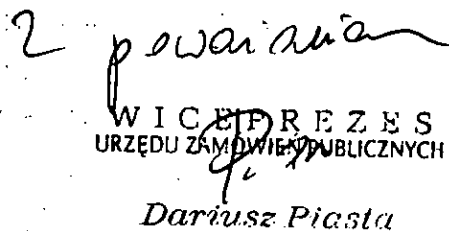 Z poważaniem
WICEPREZES
URZĘDU ZAMÓWIEŃ PUBLICZNYCH
Dariusz Piasta